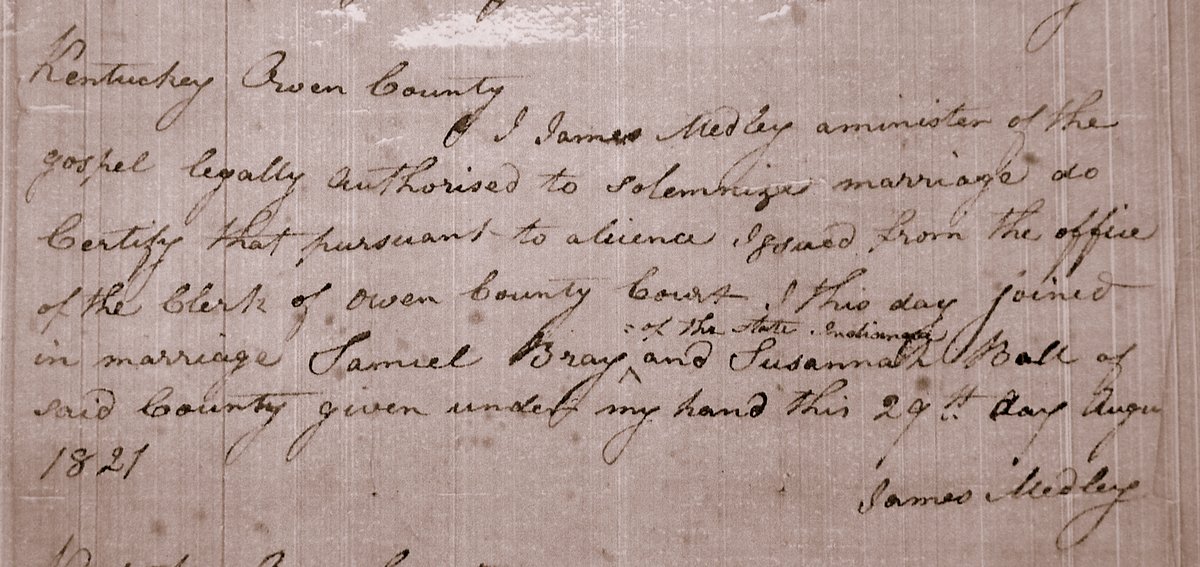 Kentucky Owen County
I James Medley a minister of the
gospel legally Authorised to solemnize marriage do
Certify that pursuant to a licence Issued from the office
of the Clerk of Owen County Court I this day joined
= of the state Indiana
in marriage Samuel Bray ^ and Susannah Ball of
said County given under my hand this 29th day Augu
1821
James Medley